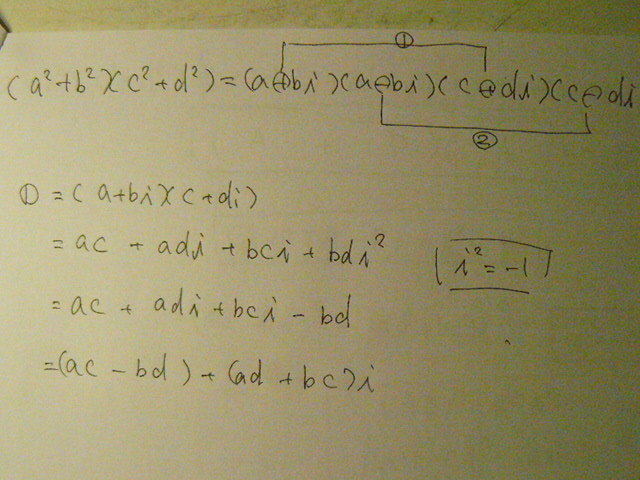 ①
(a²+b²)(c²+d²)=(a⊕bi)(a⊖bi)(c⊕di)(c⊖di
②
①=(a+bi)(c+di)
=ac+adi+bci+bdi² (i²=-1)
=ac+adi+bci-bd
=(ac-bd)+(ad+bc)i